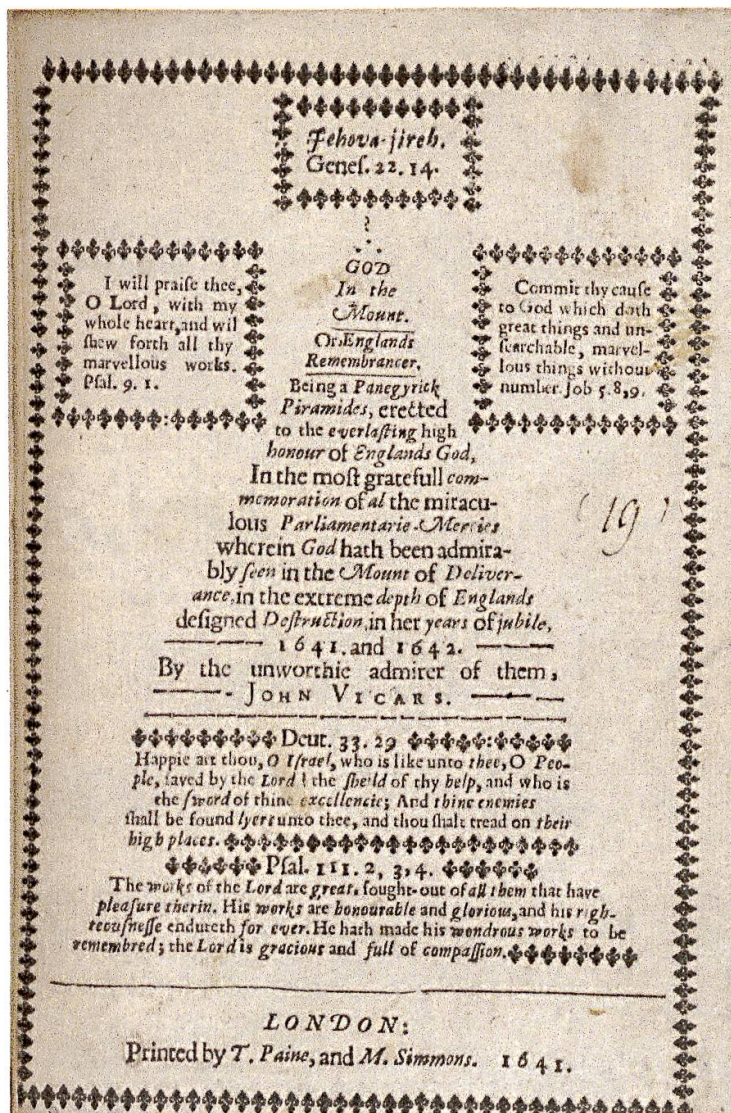 Jehova-jireh.
Geneſ. 22. 14.
I will praiſe thee,
O Lord, with my
whole heart, and wil
ſhew forth all thy
marvellous works.
Pſal. 9. 1.
GOD
In the
Mount.
Or, Englands
Remembrancer.
Commit thy cauſe
to God which doth
great things and un-
ſearchable, marvel-
lous things without
number. Job 5. 8, 9.
Being a Panegyrick
Piramides, erected
to the everlaſting high
honour of Englands God,
In the moſt gratefull com-
memoration of al the miracu-
lous Parliamentarie-Mercies
wherein God hath been admira-
bly ſeen in the Mount of Deliver-
ance, in the extreme depth of Englands
deſigned Deſtruction, in her years of jubile,
1641. and 1642.
By the unworthie admirer of them,
JOHN VICARS.
(19)
Deut. 33. 29
Happie art thou, O Iſrael, who is like unto thee, O Peo-
ple, ſaved by the Lord! the ſheild of thy help, and who is
the ſword of thine excellencie; And thine enemies
ſhall be found lyers unto thee, and thou ſhalt tread on their
high places.
Pſal. 111. 2, 3, 4.
The works of the Lord are great, ſought-out of all them that have
pleaſure therin. His works are honourable and glorious, and his righ-
teouſneſſe endureth for ever. He hath made his wondrous works to be
remembred; the Lord is gracious and full of compaſſion.
LONDON:
Printed by T. Paine, and M. Simmons. 1641.